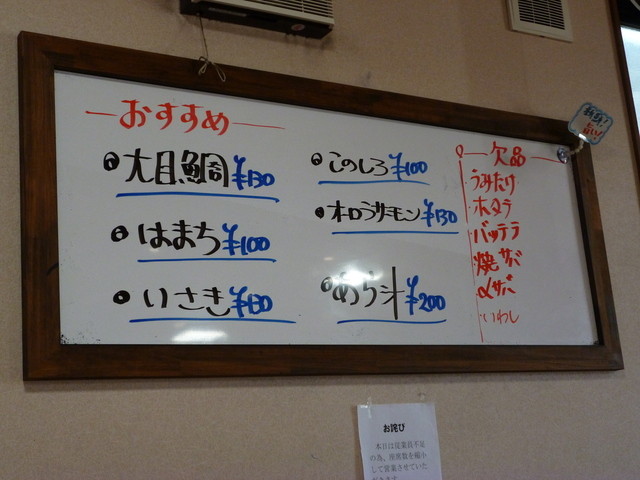 おすすめ
大目鯛 ¥130
はまち ¥100
いさき ¥130
このしろ ¥100
トロサーモン ¥130
あら汁 ¥200
欠品
うみたけ
ホタテ
バッテラ
焼サバ
〆サバ
いわし
お詫び
本日は従業員不足
の為、座席数を縮小
して営業させていた
だきます